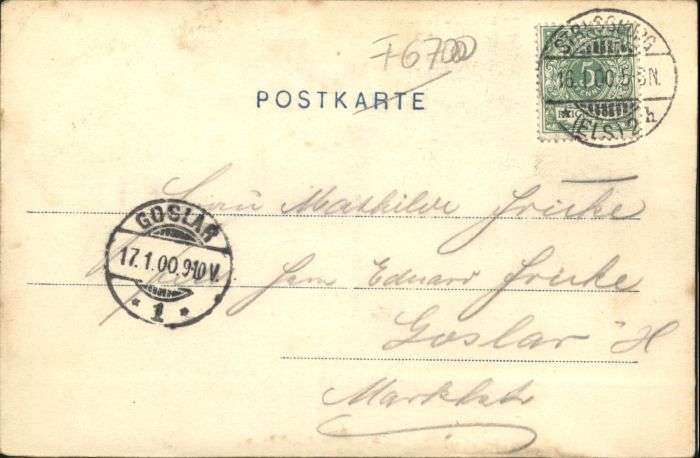 F6700
POSTKARTE
STRASSBURG
16.1.00.5-6N.
(ELS) 2 h
5
Frau Mathilde Fricke
GOSLAR
17.1.00.9-10V.
* 1 *
Herrn Eduard Fricke
Goslar H
Marktstr